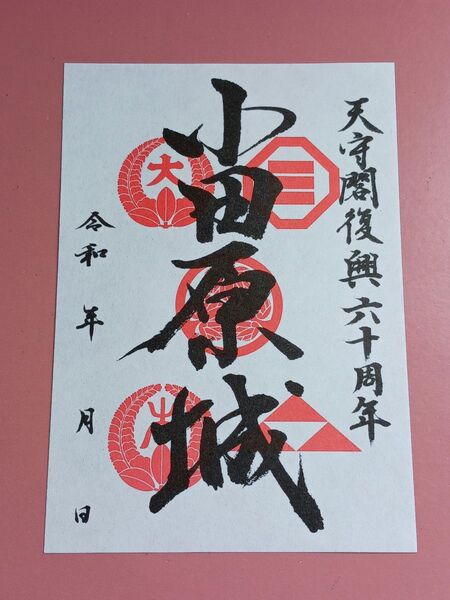 天守閣復興六十周年
小田原城
大
令和 年 月 日